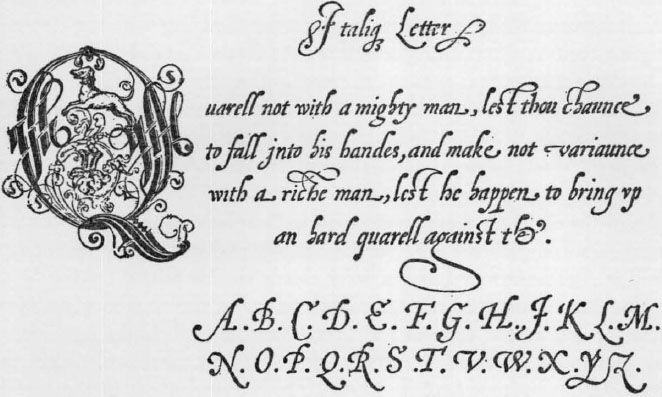 Italiq Letter
Quarell not with a mighty man, lest thou chaunce
to fall jnto his handes, and make not variaunce
with a riche man, lest he happen to bring vp
an hard quarell against the.
A.B.C.D.E.F.G.H.J.K.L.M.
N.O.P.Q.R.S.T.V.W.X.Y.Z.